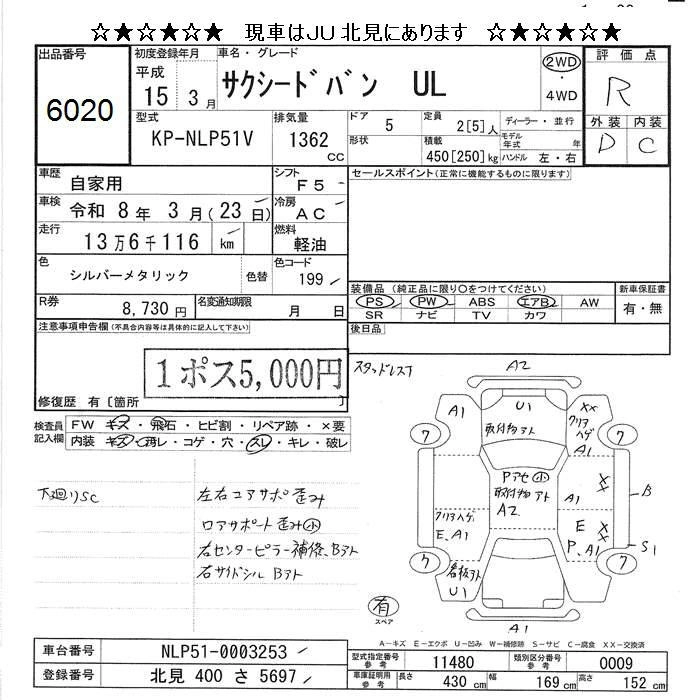 ☆★☆★☆★ 現車はJU 北見にあります ☆★☆★☆★
出品番号
6020
初度登録年月
平成
15 3月
車名・グレード
サクシードバン UL
2WD
・
4WD
評価点
R
外装 内装
D C
型式
KP-NLP51V
排気量
1362
CC
ドア
5
形状
定員
2[5]人
積載
450[250]kg
ディーラー・並行
モデル年式 年
ハンドル 左・右
車歴
自家用
シフト
F5
車検
令和 8年 3月(23日)
冷房
AC
走行
13万6千116 km
燃料
軽油
色
シルバーメタリック
色替
色コード
199
R券
8,730円
名変通知期限
月 日
セールスポイント(正常に機能するものに限ります)
装備品(純正品に限り○をつけてください)
PS PW ABS エアB AW
SR ナビ TV カワ
新車保証書
有・無
後日品
注意事項申告欄(不具合内容等は具体的に記入して下さい)
1ポス5,000円
修復歴 有〔箇所 〕
検査員記入欄
FW キズ・飛石・ヒビ割・リペア跡・×要
内装 キズ・汚レ・コゲ・穴・スレ・キレ・破レ
スタッドレスT
下廻りSC
左右コアサポ歪み
ロアサポート歪み小
右センターピラー補修、Bアト
右サイドシル Bアト
A2
A1
U1
取付物アト
XX
クリアハゲ
A1
7
7
Pアセ小
取付物アト
A2
A1
B
クリアハゲ
E、A1
E
P、A1
S1
7
7
看板アト
U1
有
スペア
A1
A－キズ E－エクボ U－凹み W－補修跡 S－サビ C－腐食 XX－交換済
車台番号
NLP51-0003253
登録番号
北見 400 さ 5697
型式指定番号
参考
11480
類別区分番号
参考
0009
車庫証明用
参考
長さ
430 cm
幅
169 cm
高さ
152 cm